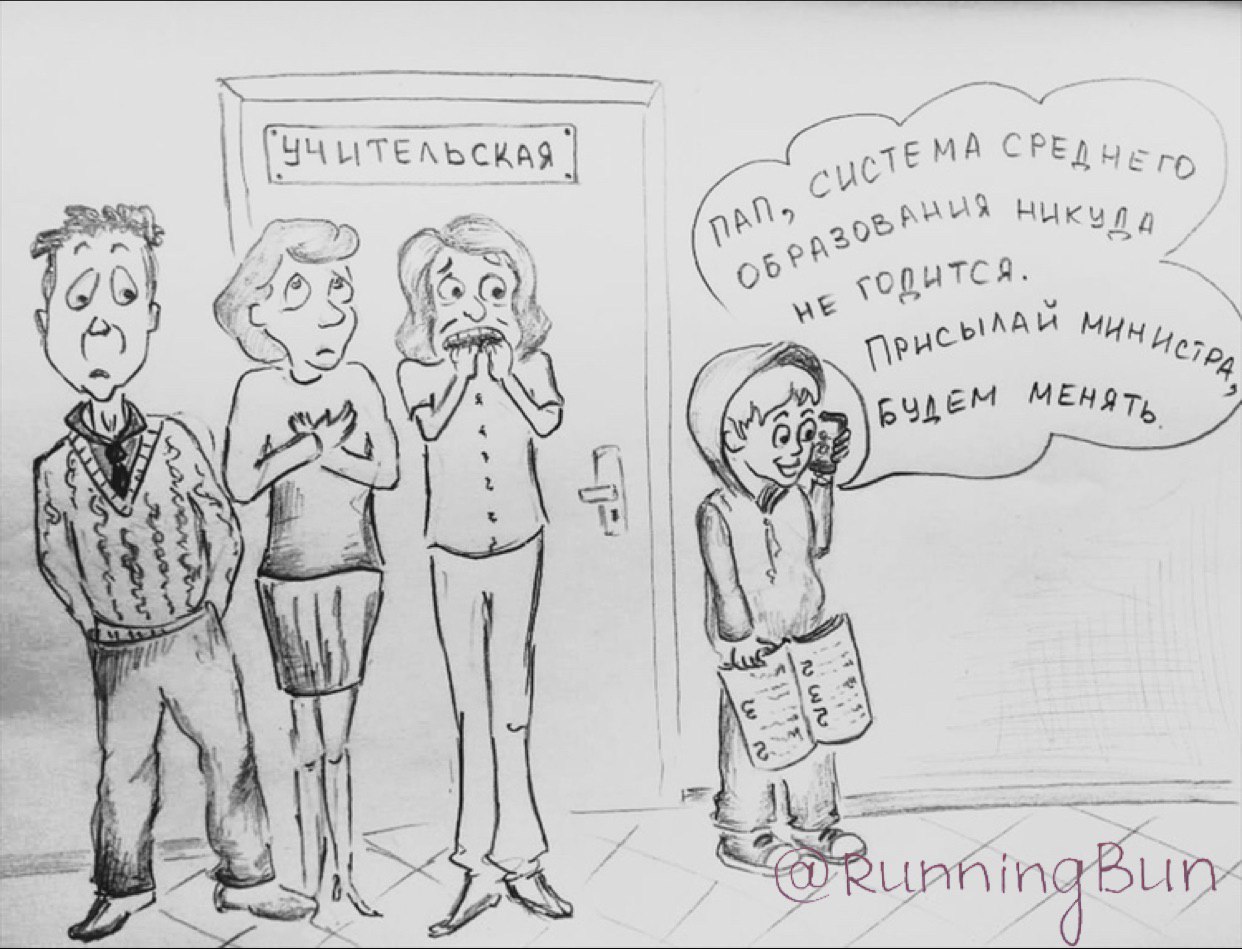 УЧИТЕЛЬСКАЯ
ПАП, СИСТЕМА СРЕДНЕГО
ОБРАЗОВАНИЯ НИКУДА
НЕ ГОДИТСЯ.
ПРИСЫЛАЙ МИНИСТРА,
БУДЕМ МЕНЯТЬ.
2
3
2
2
3
2
@RunningBun